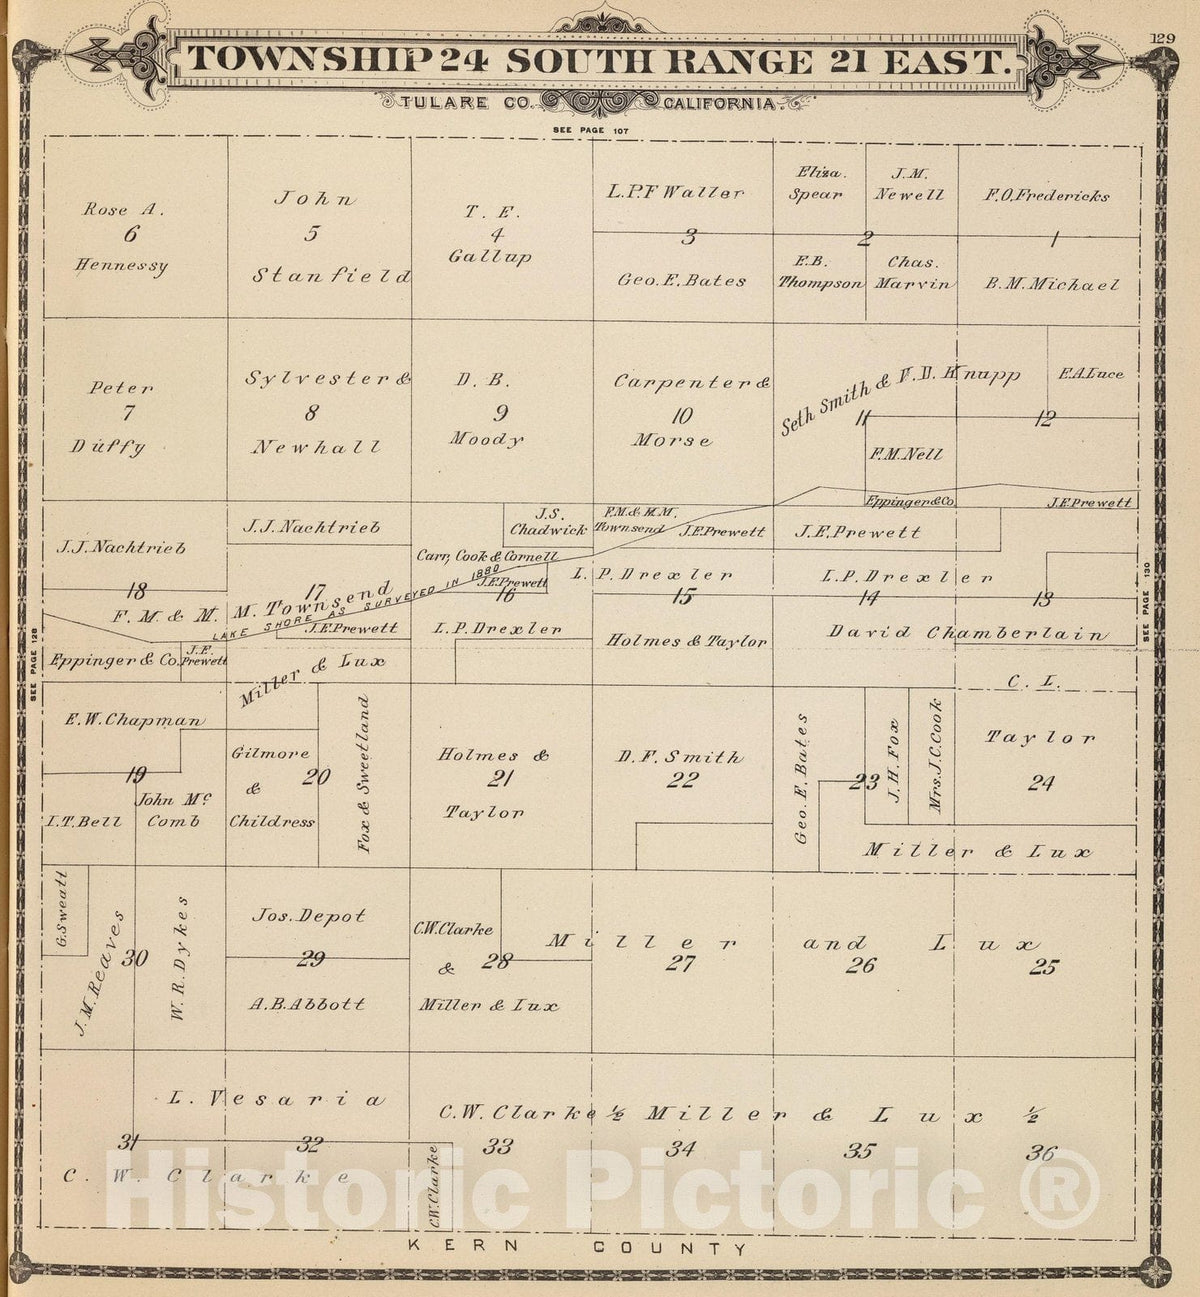 129
TOWNSHIP 24 SOUTH RANGE 21 EAST.
TULARE CO. CALIFORNIA.
SEE PAGE 107
Rose A.
6
Hennessy
John
5
Stanfield
T. E.
4
Gallup
L.P.F Waller
3
Geo. E. Bates
Eliza.
Spear
J.M.
Newell
2
E.B.
Thompson
Chas.
Marvin
F.O. Fredericks
1
B.M. Michael
Peter
7
Duffy
Sylvester &
8
Newhall
D. B.
9
Moody
Carpenter &
10
Morse
Seth Smith & V. D. Knupp
11
F.M. Nell
Eppinger & Co.
E.A. Luce
12
J.E. Prewett
J.J. Nachtrieb
18
J.J. Nachtrieb
17
F. M. & M. M. Townsend
LAKE SHORE AS SURVEYED IN 1880
J.E. Prewett
Eppinger & Co.
J.E.
Prewett
Miller & Lux
J.S.
Chadwick
Carr, Cook & Cornell
J.E. Prewett
16
L.P. Drexler
F.M. & M.M.
Townsend
J.E. Prewett
L. P. Drexler
15
Holmes & Taylor
J.E. Prewett
L.P. Drexler
14
13
David Chamberlain
SEE PAGE 128
SEE PAGE 130
E.W. Chapman
19
I.T. Bell
John Mc
Comb
Gilmore
&
Childress
20
Fox & Sweetland
Holmes &
21
Taylor
D. F. Smith
22
Geo. E. Bates
23
J. H. Fox
Mrs. J.C. Cook
C. L.
Taylor
24
Miller & Lux
G. Sweatt
J. M. Reaves
30
W. R. Dykes
Jos. Depot
29
A.B. Abbott
C.W. Clarke
&
28
Miller & Lux
Miller and Lux
27
26
25
L. Vesaria
31
32
C. W. Clarke
C.W. Clarke
C.W. Clarke ½ Miller & Lux ½
33
34
35
36
Historic Pictoric ®
KERN COUNTY